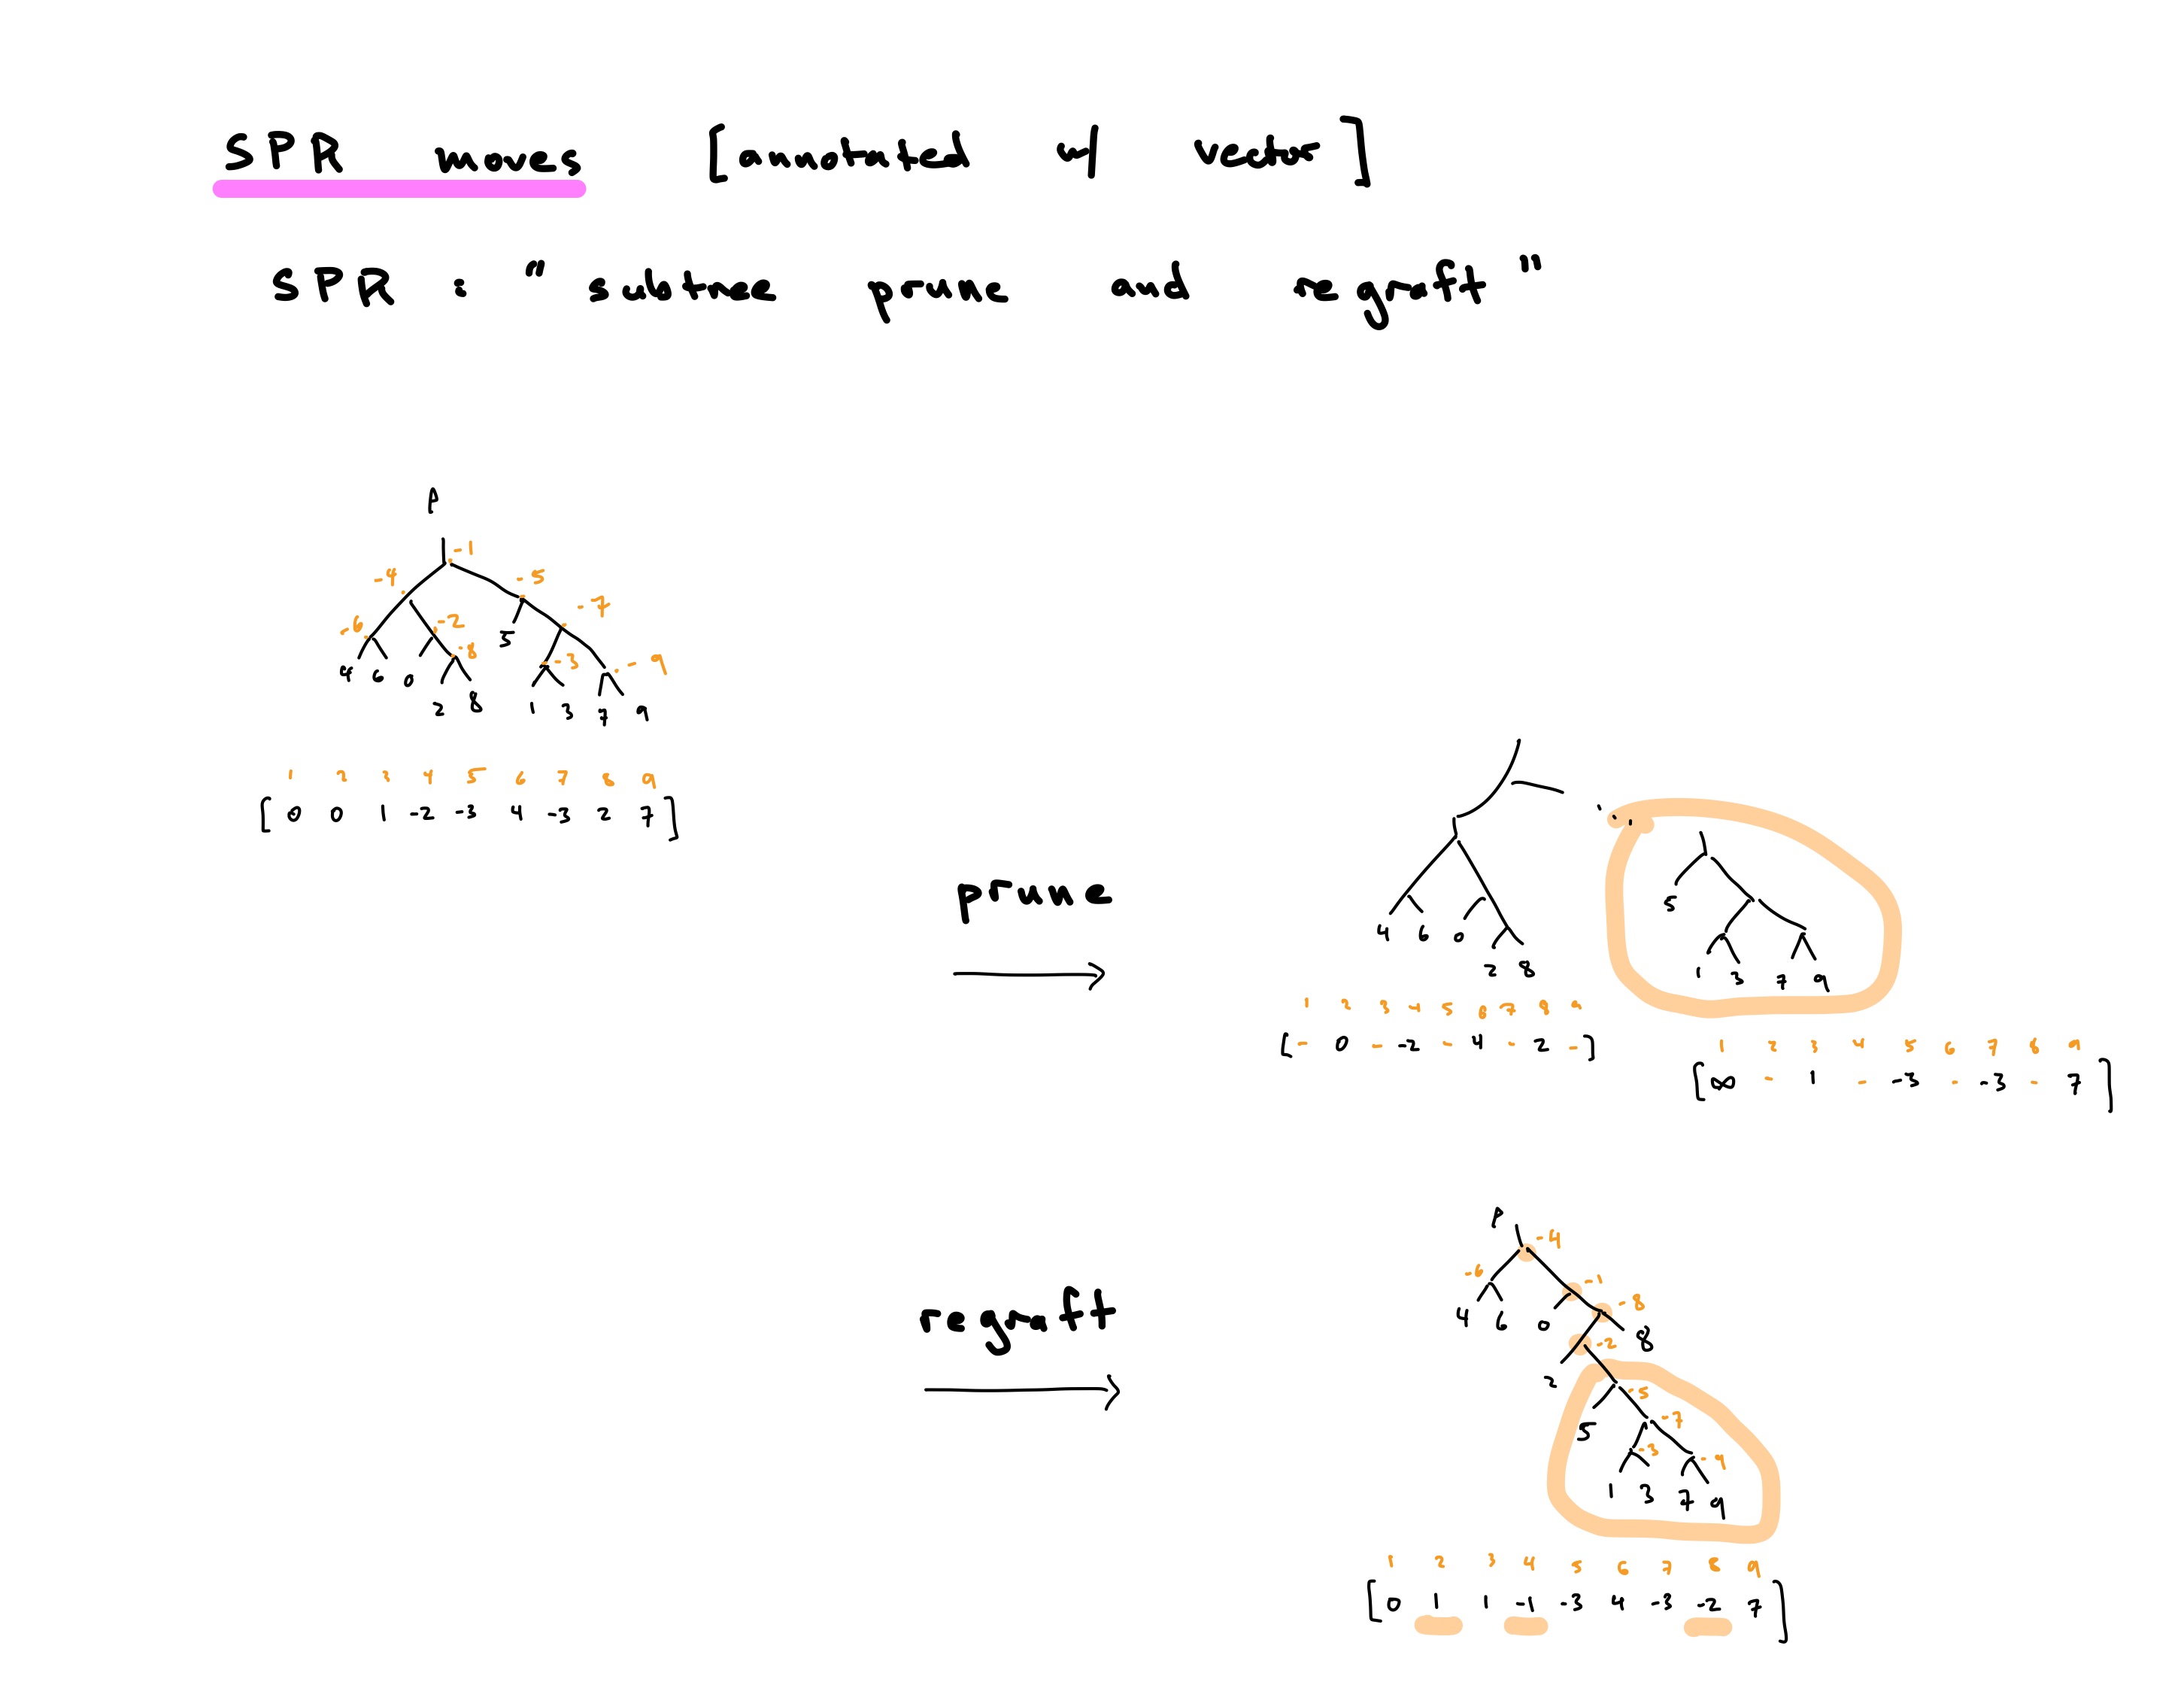 SPR moves [annotated w/ vector]
SPR : "subtree prune and regraft"
ρ
-1
-4 -5
-7
-6 -2
5
-8 -3 -9
4 6 0
2 8 1 3 7 9
1 2 3 4 5 6 7 8 9
[0 0 1 -2 -3 4 -3 2 7]
prune
5
4 6 0
2 8
1 3 7 9
1 2 3 4 5 6 7 8 9
[- 0 - -2 - 4 - 2 -]
1 2 3 4 5 6 7 8 9
[∞ - 1 - -3 - -3 - 7]
regraft
ρ
-4
-6 -1
-8
4 6 0 8
-2
2
-5
-7
5
-3 -9
1 3 7 9
1 2 3 4 5 6 7 8 9
[0 1 1 -1 -3 4 -3 -2 7]